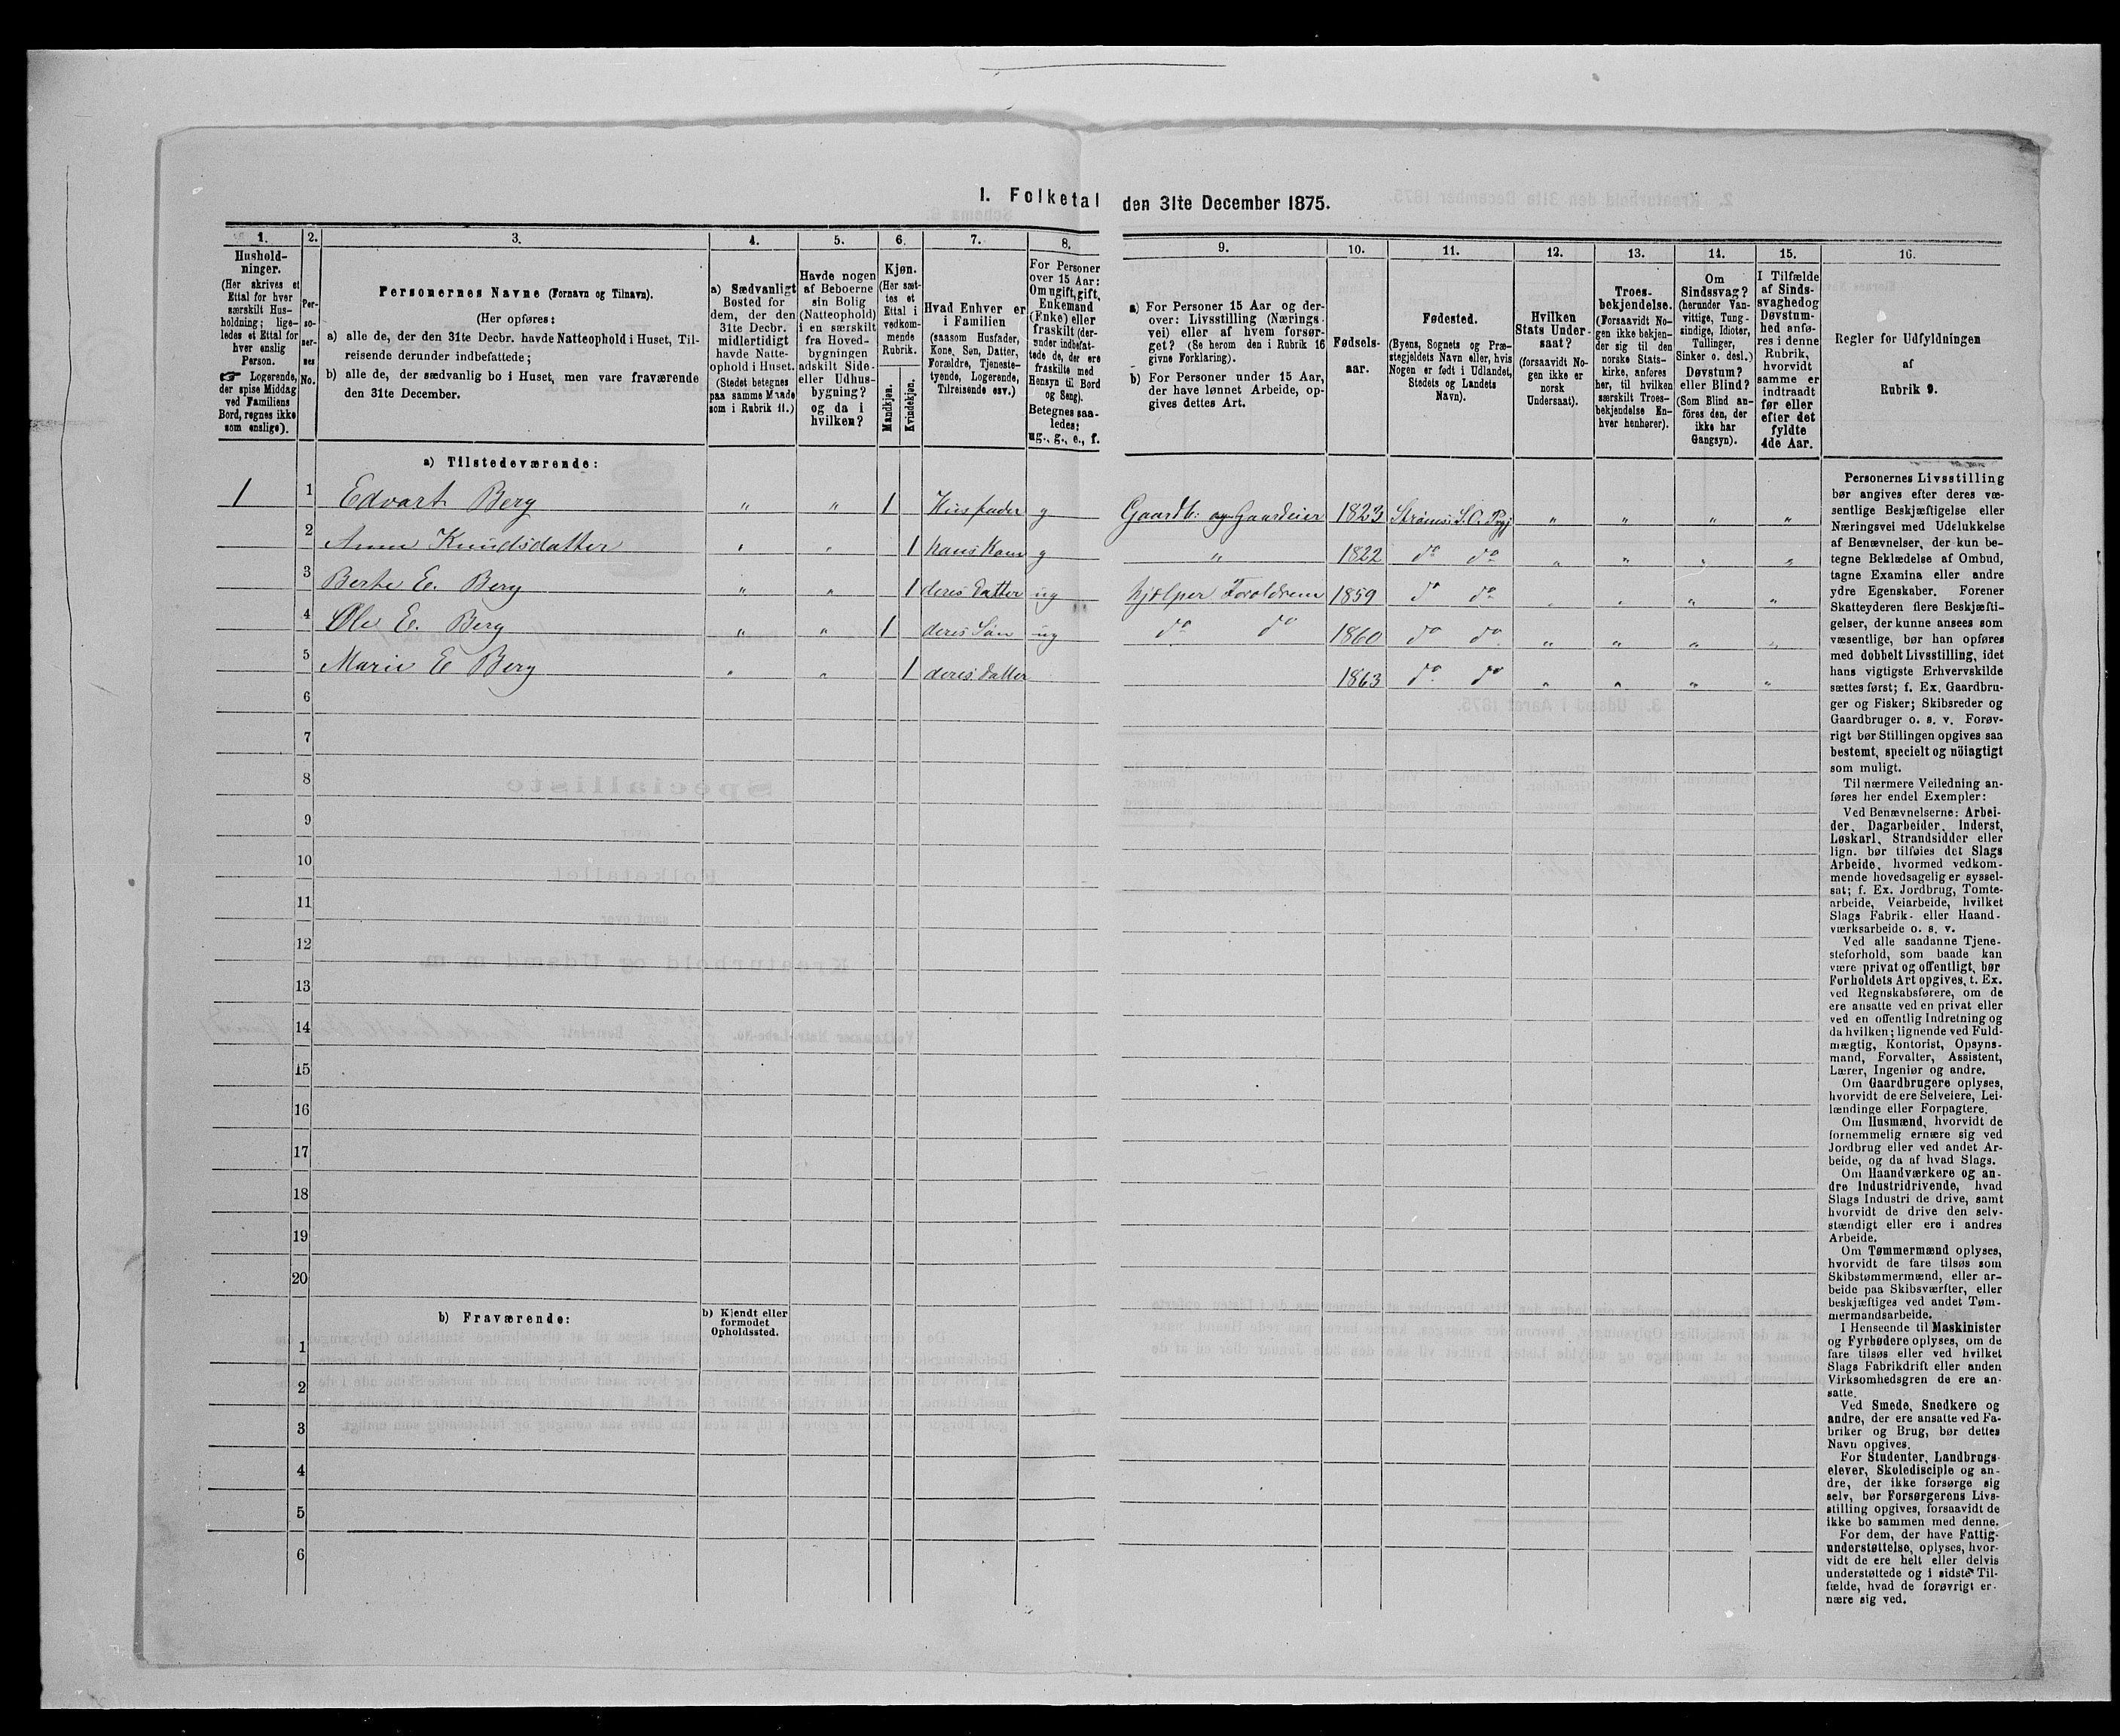 I. Folketal den 31te December 1875.
1. 2. 3. 4. 5. 6. 7. 8. 9. 10. 11. 12. 13. 14. 15. 16.
Hushold-
ninger.
(Her skrives et
Ettal for hver
særskilt Hus-
holdning; lige-
ledes et Ettal for
hver enslig
Person.
☞ Logerende,
der spise Middag
ved Familiens
Bord, regnes ikke
som enslige).
Per-
so-
ner-
nes
No.
Personernes Navne (Fornavn og Tilnavn).
(Her opføres:
a) alle de, der den 31te Decbr. havde Natteophold i Huset, Til-
reisende derunder indbefattede;
b) alle de, der sædvanlig bo i Huset, men vare fraværende
den 31te December.
a) Sædvanligt
Bosted for
dem, der den
31te Decbr.
midlertidigt
havde Natte-
ophold i Huset.
(Stedet betegnes
paa samme Maade
som i Rubrik 11.)
Havde nogen
af Beboerne
sin Bolig
(Natteophold)
i en særskilt
fra Hoved-
bygningen
adskilt Side-
eller Udhus-
bygning?
og da i
hvilken?
Kjøn.
(Her sæt-
tes et
Ettal i
vedkom-
mende
Rubrik.
Mandkjøn.
Kvindekjøn.
Hvad Enhver er
i Familien
(saasom Husfader,
Kone, Søn, Datter,
Forældre, Tjeneste-
tyende, Logerende,
Tilreisende osv.)
For Personer
over 15 Aar:
Om ugift, gift,
Enkemand
(Enke) eller
fraskilt (der-
under indbefat-
tede de, der ere
fraskilte med
Hensyn til Bord
og Seng).
Betegnes saa-
ledes:
ug., g., e., f.
a) For Personer 15 Aar og der-
over: Livsstilling (Nærings-
vei) eller af hvem forsør-
get? (Se herom den i Rubrik 16
givne Forklaring).
b) For Personer under 15 Aar,
der have lønnet Arbeide, op-
gives dettes Art.
Fødsels-
aar.
Fødested.
(Byens, Sognets og Præ-
stegjeldets Navn eller, hvis
Nogen er født i Udlandet,
Stedets og Landets
Navn).
Hvilken
Stats Under-
saat?
(forsaavidt No-
gen ikke er
norsk
Undersaat).
Troes-
bekjendelse.
(Forsaavidt No-
gen ikke bekjen-
der sig til den
norske Stats-
kirke, anføres
her, til hvilken
særskilt Troes-
bekjendelse En-
hver henhører).
Om
Sindssvag?
(herunder Van-
vittige, Tung-
sindige, Idioter,
Tullinger,
Sinker o. desl.)
Døvstum?
eller Blind?
(Som Blind an-
føres den, der
ikke har
Gangsyn).
I Tilfælde
af Sinds-
svaghed og
Døvstum-
hed anfø-
res i denne
Rubrik,
hvorvidt
samme er
indtraadt
før eller
efter det
fyldte
4de Aar.
Regler for Udfyldningen
af
Rubrik 9.
a) Tilstedeværende:
1 1 Edvart Berg " " 1 Husfader g Gaardb: og Gaardeier 1823 " " " "
2 Anne Knudsdatter " " 1 hans Kone g " 1822 do do " " " "
3 Berte E. Berg " " 1 deres Datter ug hjelper Foroldrene 1859 do do " " " "
4 Ole E. Berg " " 1 deres Søn ug do do 1860 do do " " " "
5 Marie E Berg " " 1 deres Datter 1863 do do " " " "
6
7
8
9
10
11
12
13
14
15
16
17
18
19
20
b) Fraværende:
b) Kjendt eller
formodet
Opholdssted.
1
2
3
4
5
6
Personernes Livsstilling
bør angives efter deres væ-
sentlige Beskjæftigelse eller
Næringsvei med Udelukkelse
af Benævnelser, der kun be-
tegne Beklædelse af Ombud,
tagne Examina eller andre
ydre Egenskaber. Forener
Skatteyderen flere Beskjæfti-
gelser, der kunne ansees som
væsentlige, bør han opføres
med dobbelt Livsstilling, idet
hans vigtigste Erhvervskilde
sættes først; f. Ex. Gaardbru-
ger og Fisker; Skibsreder og
Gaardbruger o. s. v. Forøv-
rigt bør Stillingen opgives saa
bestemt, specielt og nöiagtigt
som muligt.
Til nærmere Veiledning an-
føres her endel Exempler:
Ved Benævnelserne: Arbei-
der, Dagarbeider, Inderst,
Løskarl, Strandsidder eller
lign. bør tilføies det Slags
Arbeide, hvormed vedkom-
mende hovedsagelig er syssel-
sat; f. Ex. Jordbrug, Tomte-
arbeide, Veiarbeide, hvilket
Slags Fabrik- eller Haand-
værksarbeide o. s. v.
Ved alle saadanne Tjene-
steforhold, som baade kan
være privat og offentligt, bør
Forholdets Art opgives, t. Ex.
ved Regnskabsførere, om de
ere ansatte ved en privat eller
ved en offentlig Indretning og
da hvilken; lignende ved Fuld-
mægtig, Kontorist, Opsyns-
mand, Forvalter, Assistent,
Lærer, Ingeniør og andre.
Om Gaardbrugere oplyses,
hvorvidt de ere Selveiere, Lei-
lændinge eller Forpagtere.
Om Husmænd, hvorvidt de
fornemmelig ernære sig ved
Jordbrug eller ved andet Ar-
beide, og da af hvad Slags.
Om Haandværkere og an-
dre Industridrivende, hvad
Slags Industri de drive, samt
hvorvidt de drive den selv-
stændigt eller ere i andres
Arbeide.
Om Tømmermænd oplyses,
hvorvidt de fare tilsøs som
Skibstømmermænd, eller ar-
beide paa Skibsværfter, eller
beskjæftiges ved andet Tøm-
mermandsarbeide.
I Henseende til Maskinister
og Fyrbødere oplyses, om de
fare tilsøs eller ved hvilket
Slags Fabrikdrift eller anden
Virksomhedsgren de ere an-
satte.
Ved Smede, Snedkere og
andre, der ere ansatte ved Fa-
briker og Brug, bør dettes
Navn opgives.
For Studenter, Landbrugs-
elever, Skoledisciple og an-
dre, der ikke forsørge sig
selv, bør Forsørgerens Livs-
stilling opgives, forsaavidt de
ikke bo sammen med denne.
For dem, der have Fattig-
understøttelse, oplyses, hvor-
vidt de ere helt eller delvis
understøttede og i sidste Til-
fælde, hvad de forøvrigt er-
nære sig ved.